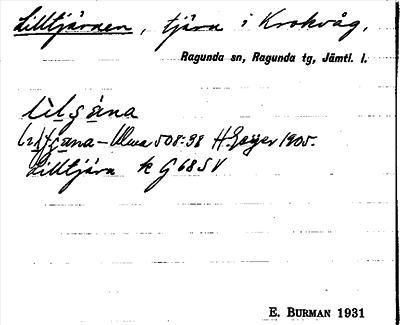 Lilltjärnen, tjärn i Krokvåg,
Ragunda sn, Ragunda tg, Jämtl. l.
Ulma 508:38 H. Geijer 1905.
Lilltjärn k G 68 SV
E. BURMAN 1931